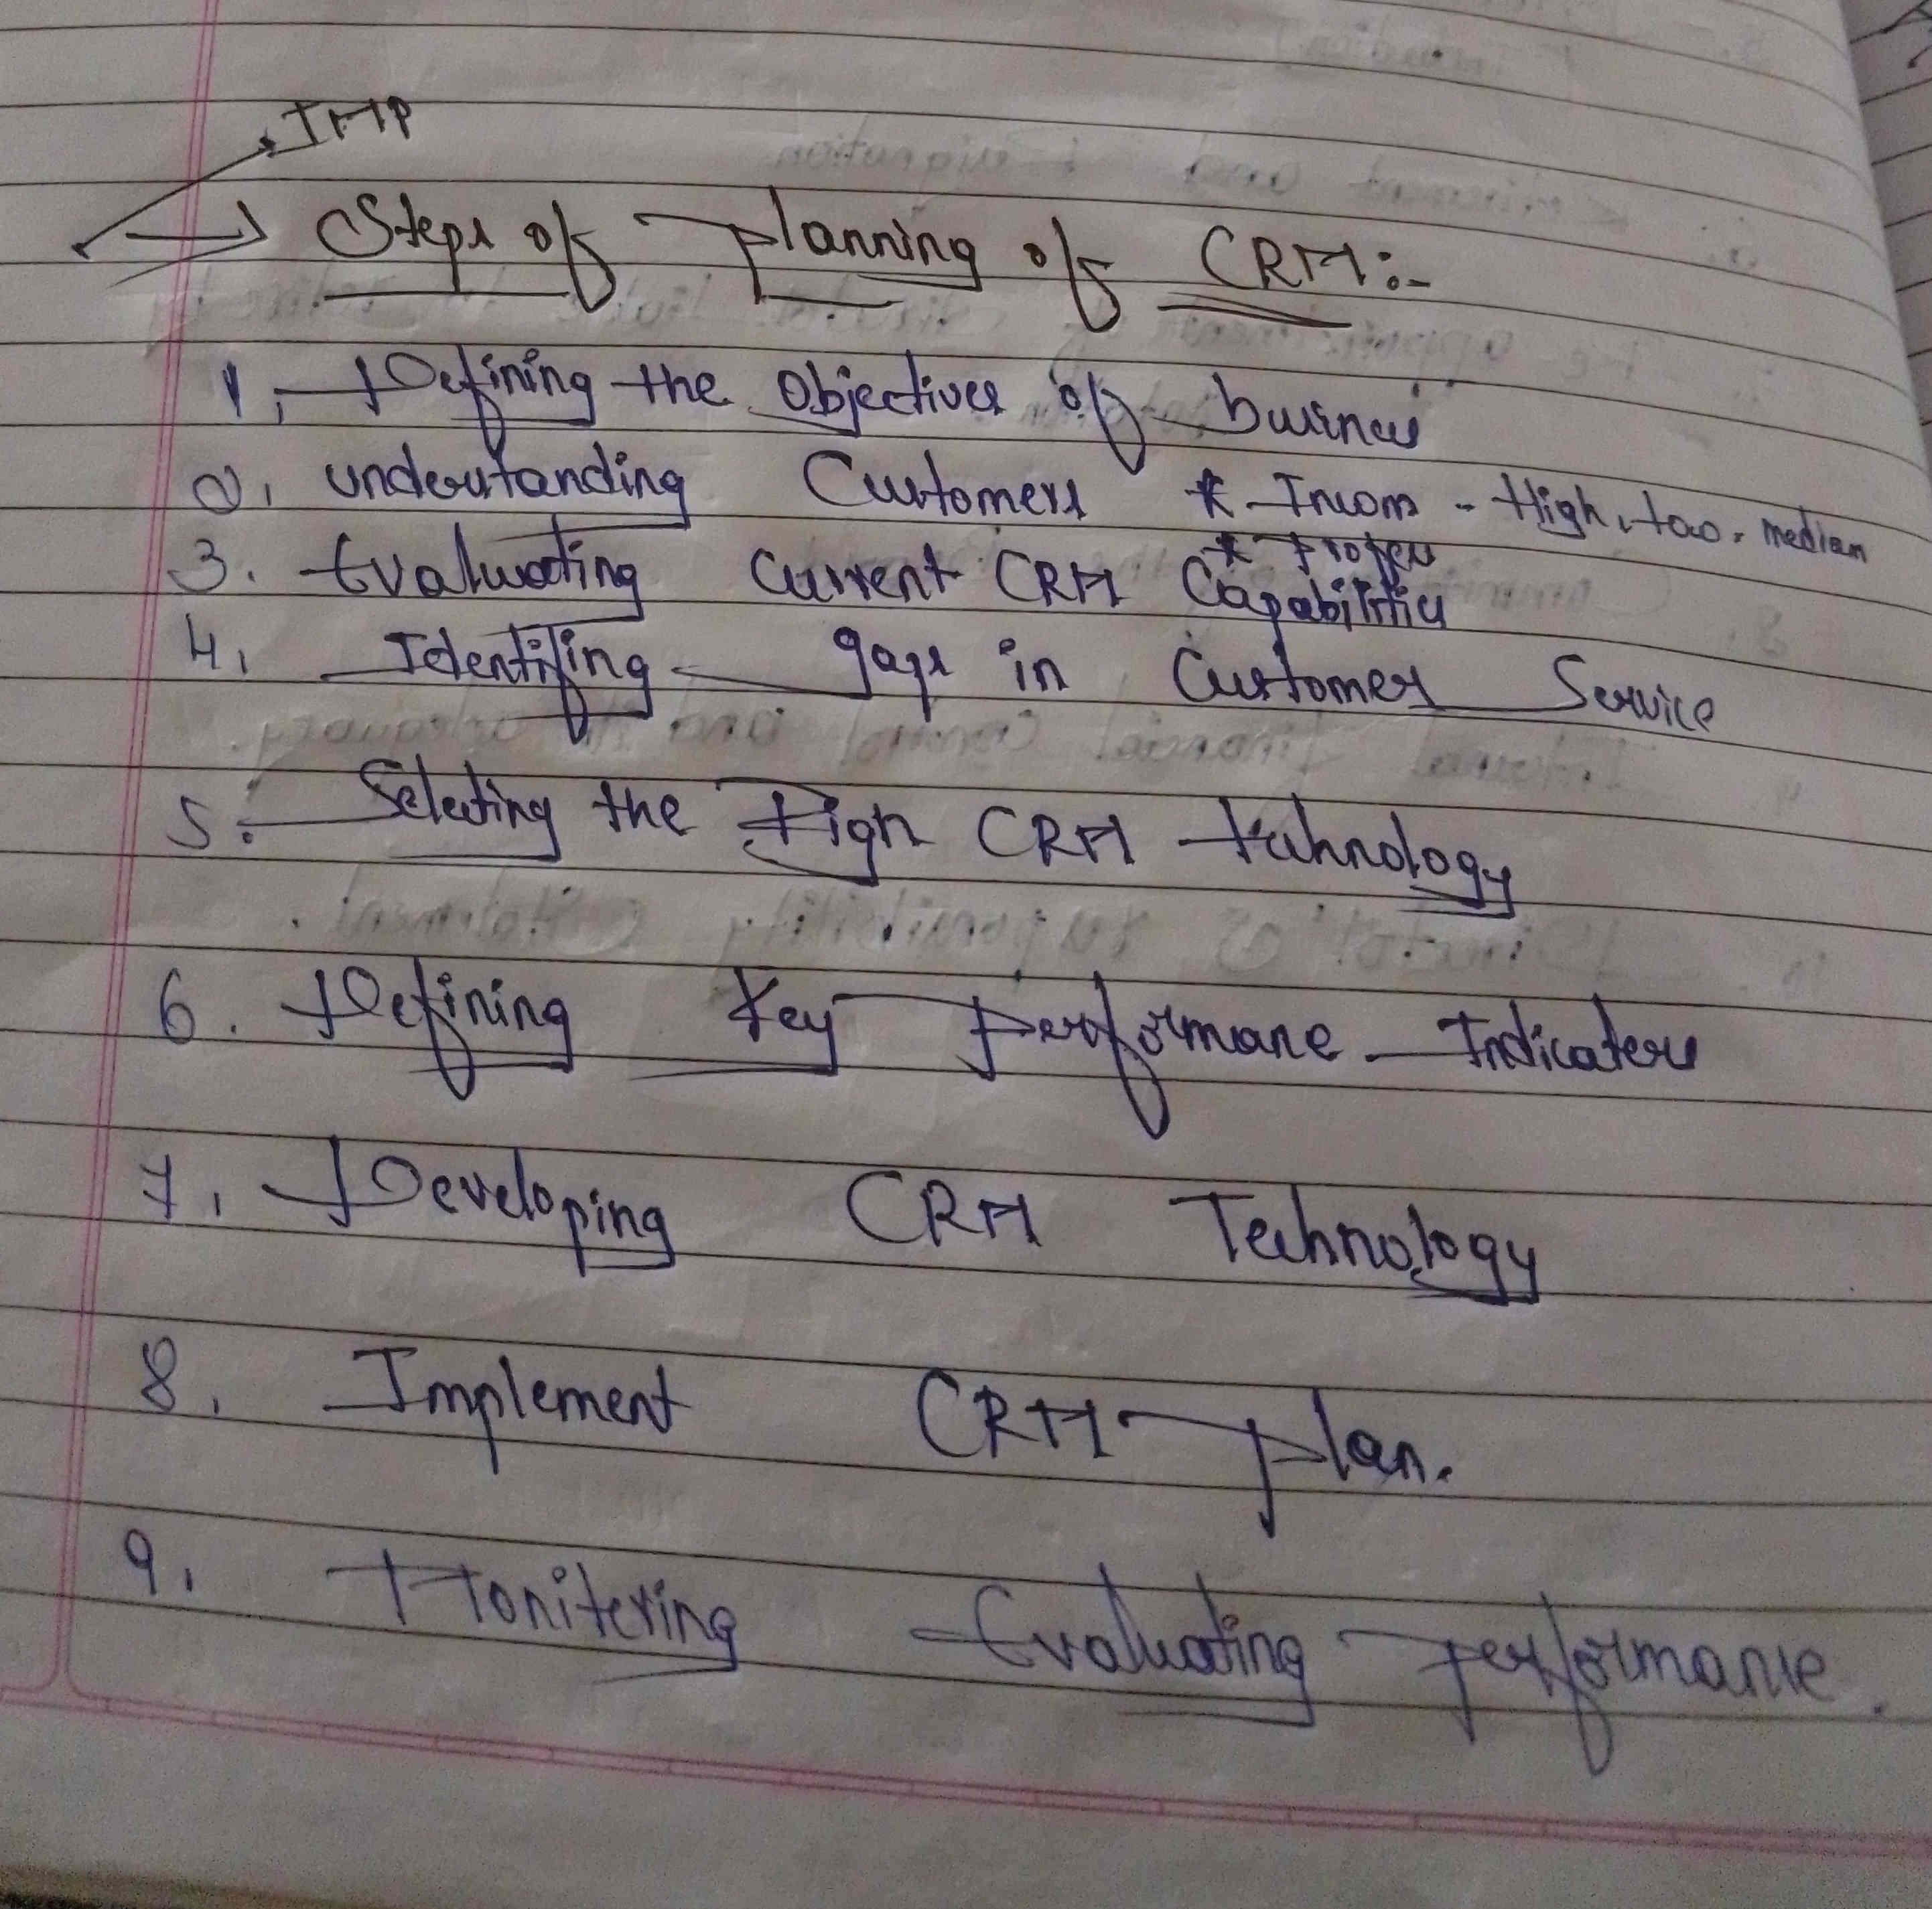 IMP
Steps of planning of CRM:-
1, Defining the Objectives of business
2, understanding Customers * Incom - High, low, median
* Profess
3. Evaluating Current CRM Capabilities
4, Identifing gaps in Customer Service
5. Selecting the Righ CRM technology
6. Defining Key performane Indicaters
7, Developing CRM Technology
8, Implement CRM plan.
9, Monitering Evaluating performance.